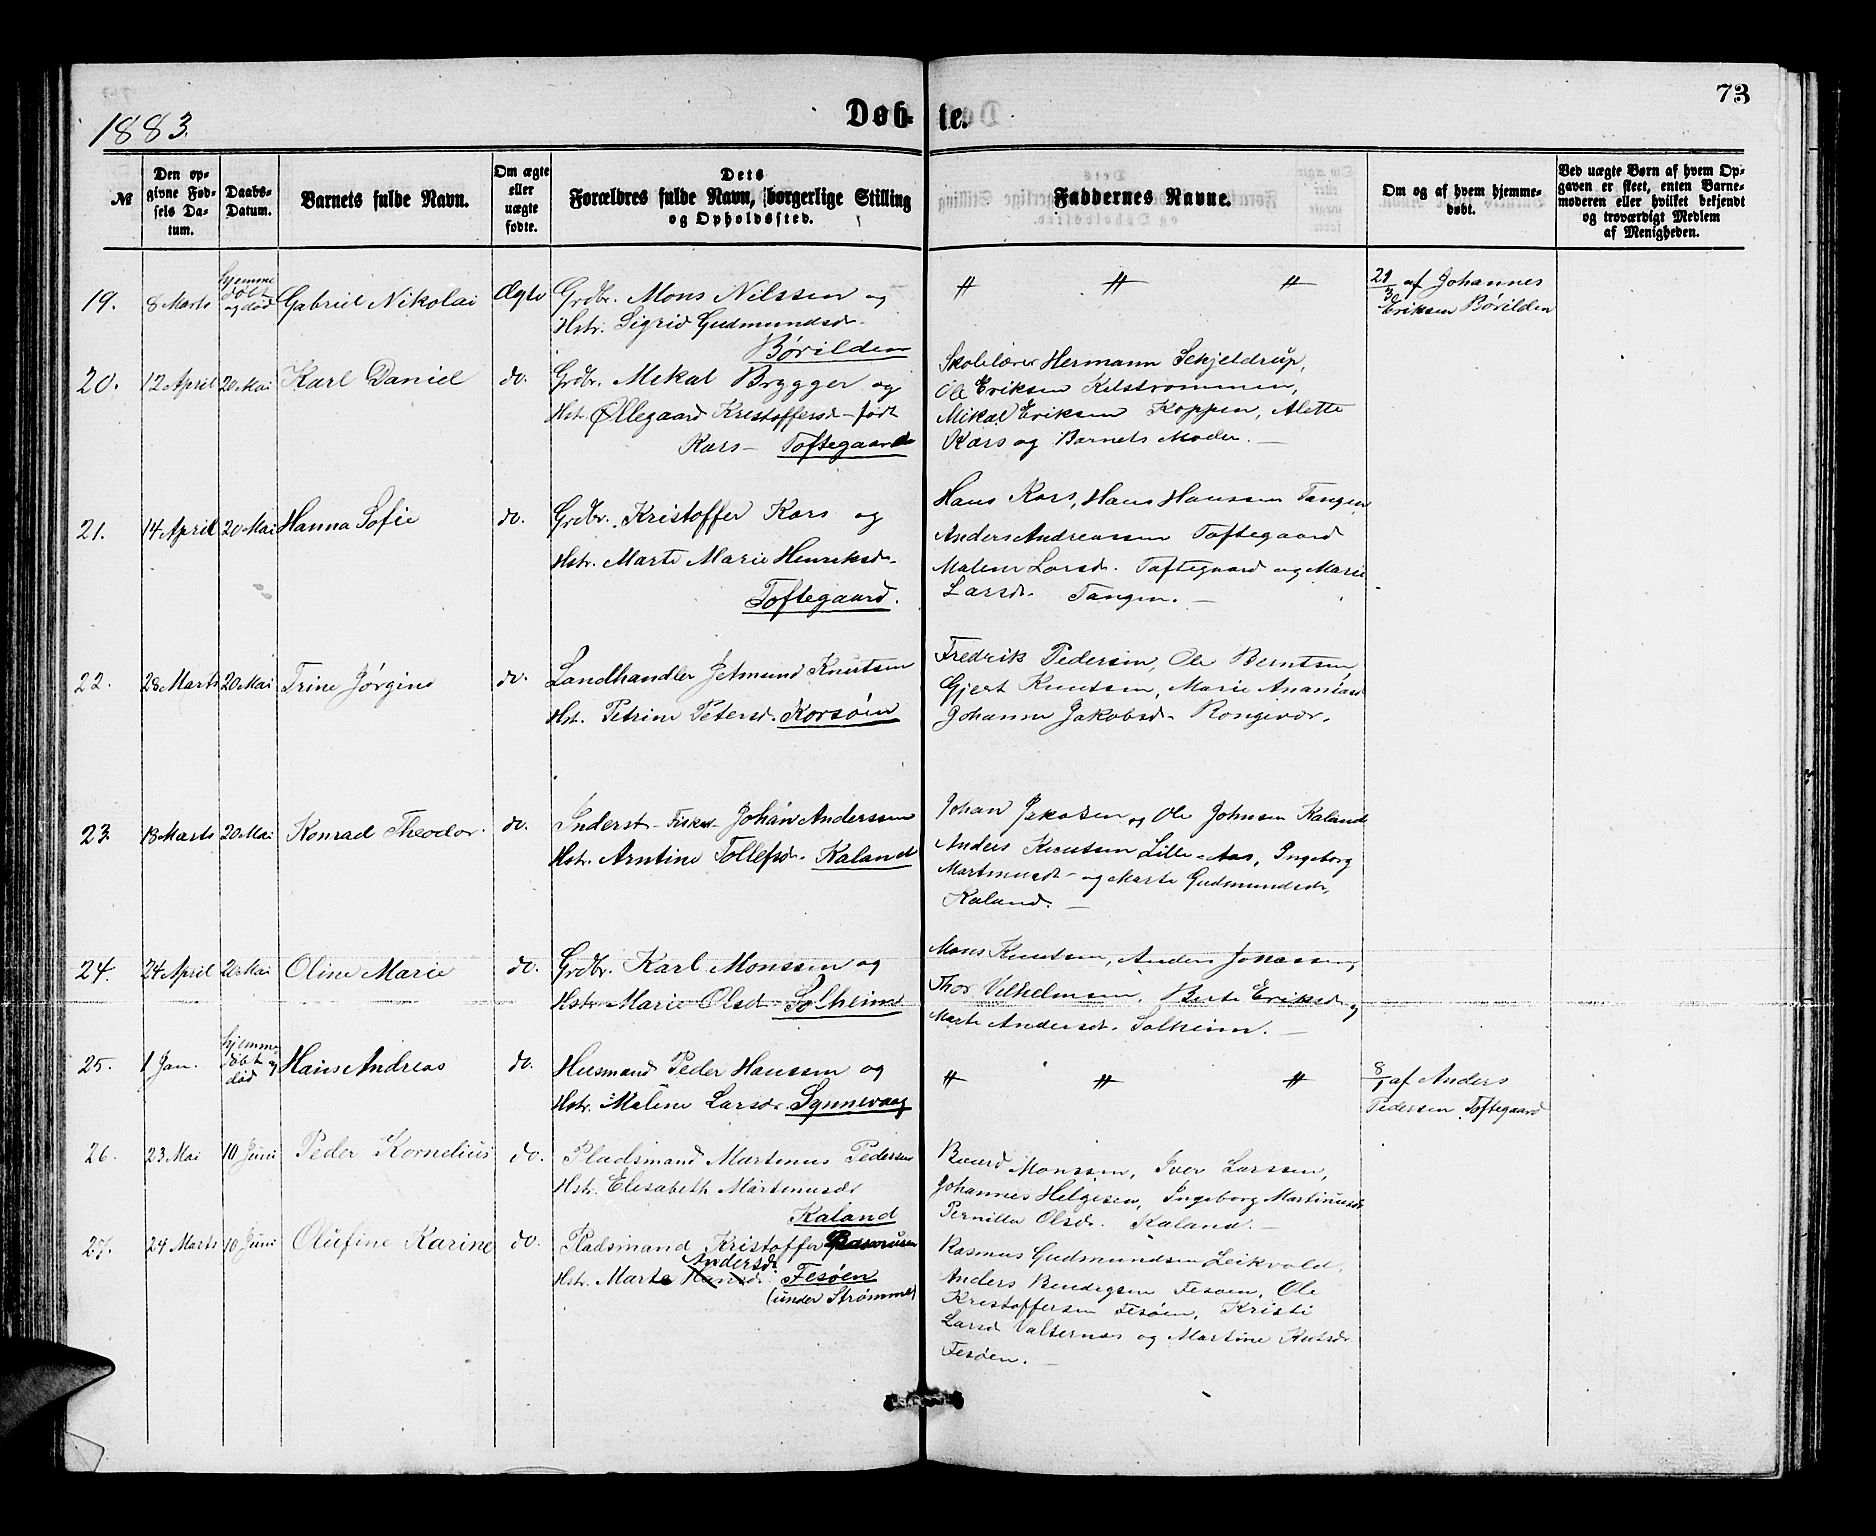 73
1883.
Døb- te.
№
Den opgivne Fødsels Datum.
Daabs-Datum.
Barnets fulde Navn.
Om ægte eller uægte fødte.
Dets Forældres fulde Navn, borgerlige Stilling og Opholdssted.
Faddernes Navne.
Om og af hvem hjemmedøbt.
Ved uægte Børn af hvem Opgaven er skeet, enten Barnemoderen eller hvilket bekjendt og troværdigt Medlem af Menigheden.
19. 8 Marts hjemmedøbt og død Gabriel Nikolai Ægte Grdbr. Mons Nilssen og
Hstr. Sigrid Gudmundsdr.
Børilden
" " "
21/3 af Johannes
Eriksen Børilden
20. 12 April 20 Mai Karl Daniel do. Grdbr. Mekal Brygger og
Hst. Øllegaard Kristoffersd- født
Kars- Toftegaard
Skolelærer Hermann Schjeldrup,
Ole Eriksen Kelstrommen,
Mikal Eriksen Koppen, Alette
Kars og Barnets Moder.
21. 14 April 20 Mai Hanna Sofie do. Grdbr. Kristoffer Kars og
Hstr. Marte Marie Henriksdr.
Toftegaard.
Hans Kars, Hans Hanssen Tangen
Anders Andreassen Toftegaard
Malene Larsdr. Toftegaard og Marie
Larsdr. Tangen.
22. 28 Marts 20 Mai Trine Jørgine do. Landhandler Jetmund Knutsen
Hst. Petrine Petersd. Korsøen
Fredrik Pedersen, Ole Berntsen,
Gjert Knutsen, Marie Ananiasd
Johanne Jakobsd. Rongevær.
23. 18 Marts 20 Mai Konrad Theodor. do. Inderst- Fisker- Johan Anderssen
Hstr. Arntine Tollefsdr. Kaland
Johan Jakobsen og Ole Johnsen Kaland
Anders Knutsen Lille-Aas, Ingeborg
Martinusdr- og Marte Gudmundsdr,
Kaland.
24. 24 April 20 Mai Oline Marie do. Grdbr. Karl Monssen og
Hstr. Marie Olsdr. Solheim
Mons Knutsen, Anders
Thor Vilhelmsen, Berte Eriksdr og
Marte Andersdr. Solheim.
25. 1 Jan. hjemmedøbt og død Hans Andreas do. Husmand Peder Hanssen og
Hstr. Malene Larsdr. Synnevaag
" " "
8/1 af Anders
Pedersen Toftegaard
26. 23 Mai 10 Juni Peder Kornelius do. Pladsmand Martinus Pedersen
Hstr. Elisabeth Martinusdr
Kaland
Baard Monssen, Iver Larssen,
Johannes Helgesen, Ingeborg Martinusdr
Pernille Olsdr. Kaland.
27. 24 Marts 10 Juni Olufine Karine do. Pladsmand Kristoffer
Andersdr.
Hst. Marte Hansdr. Fesøen
(under Strømme)
Rasmus Gudmundsen Leikvold,
Anders Bendigsen Fesøen, Ole
Kristoffersen Fesøen, Kristi
Larsd Valsernes og Martine
Fesøen.